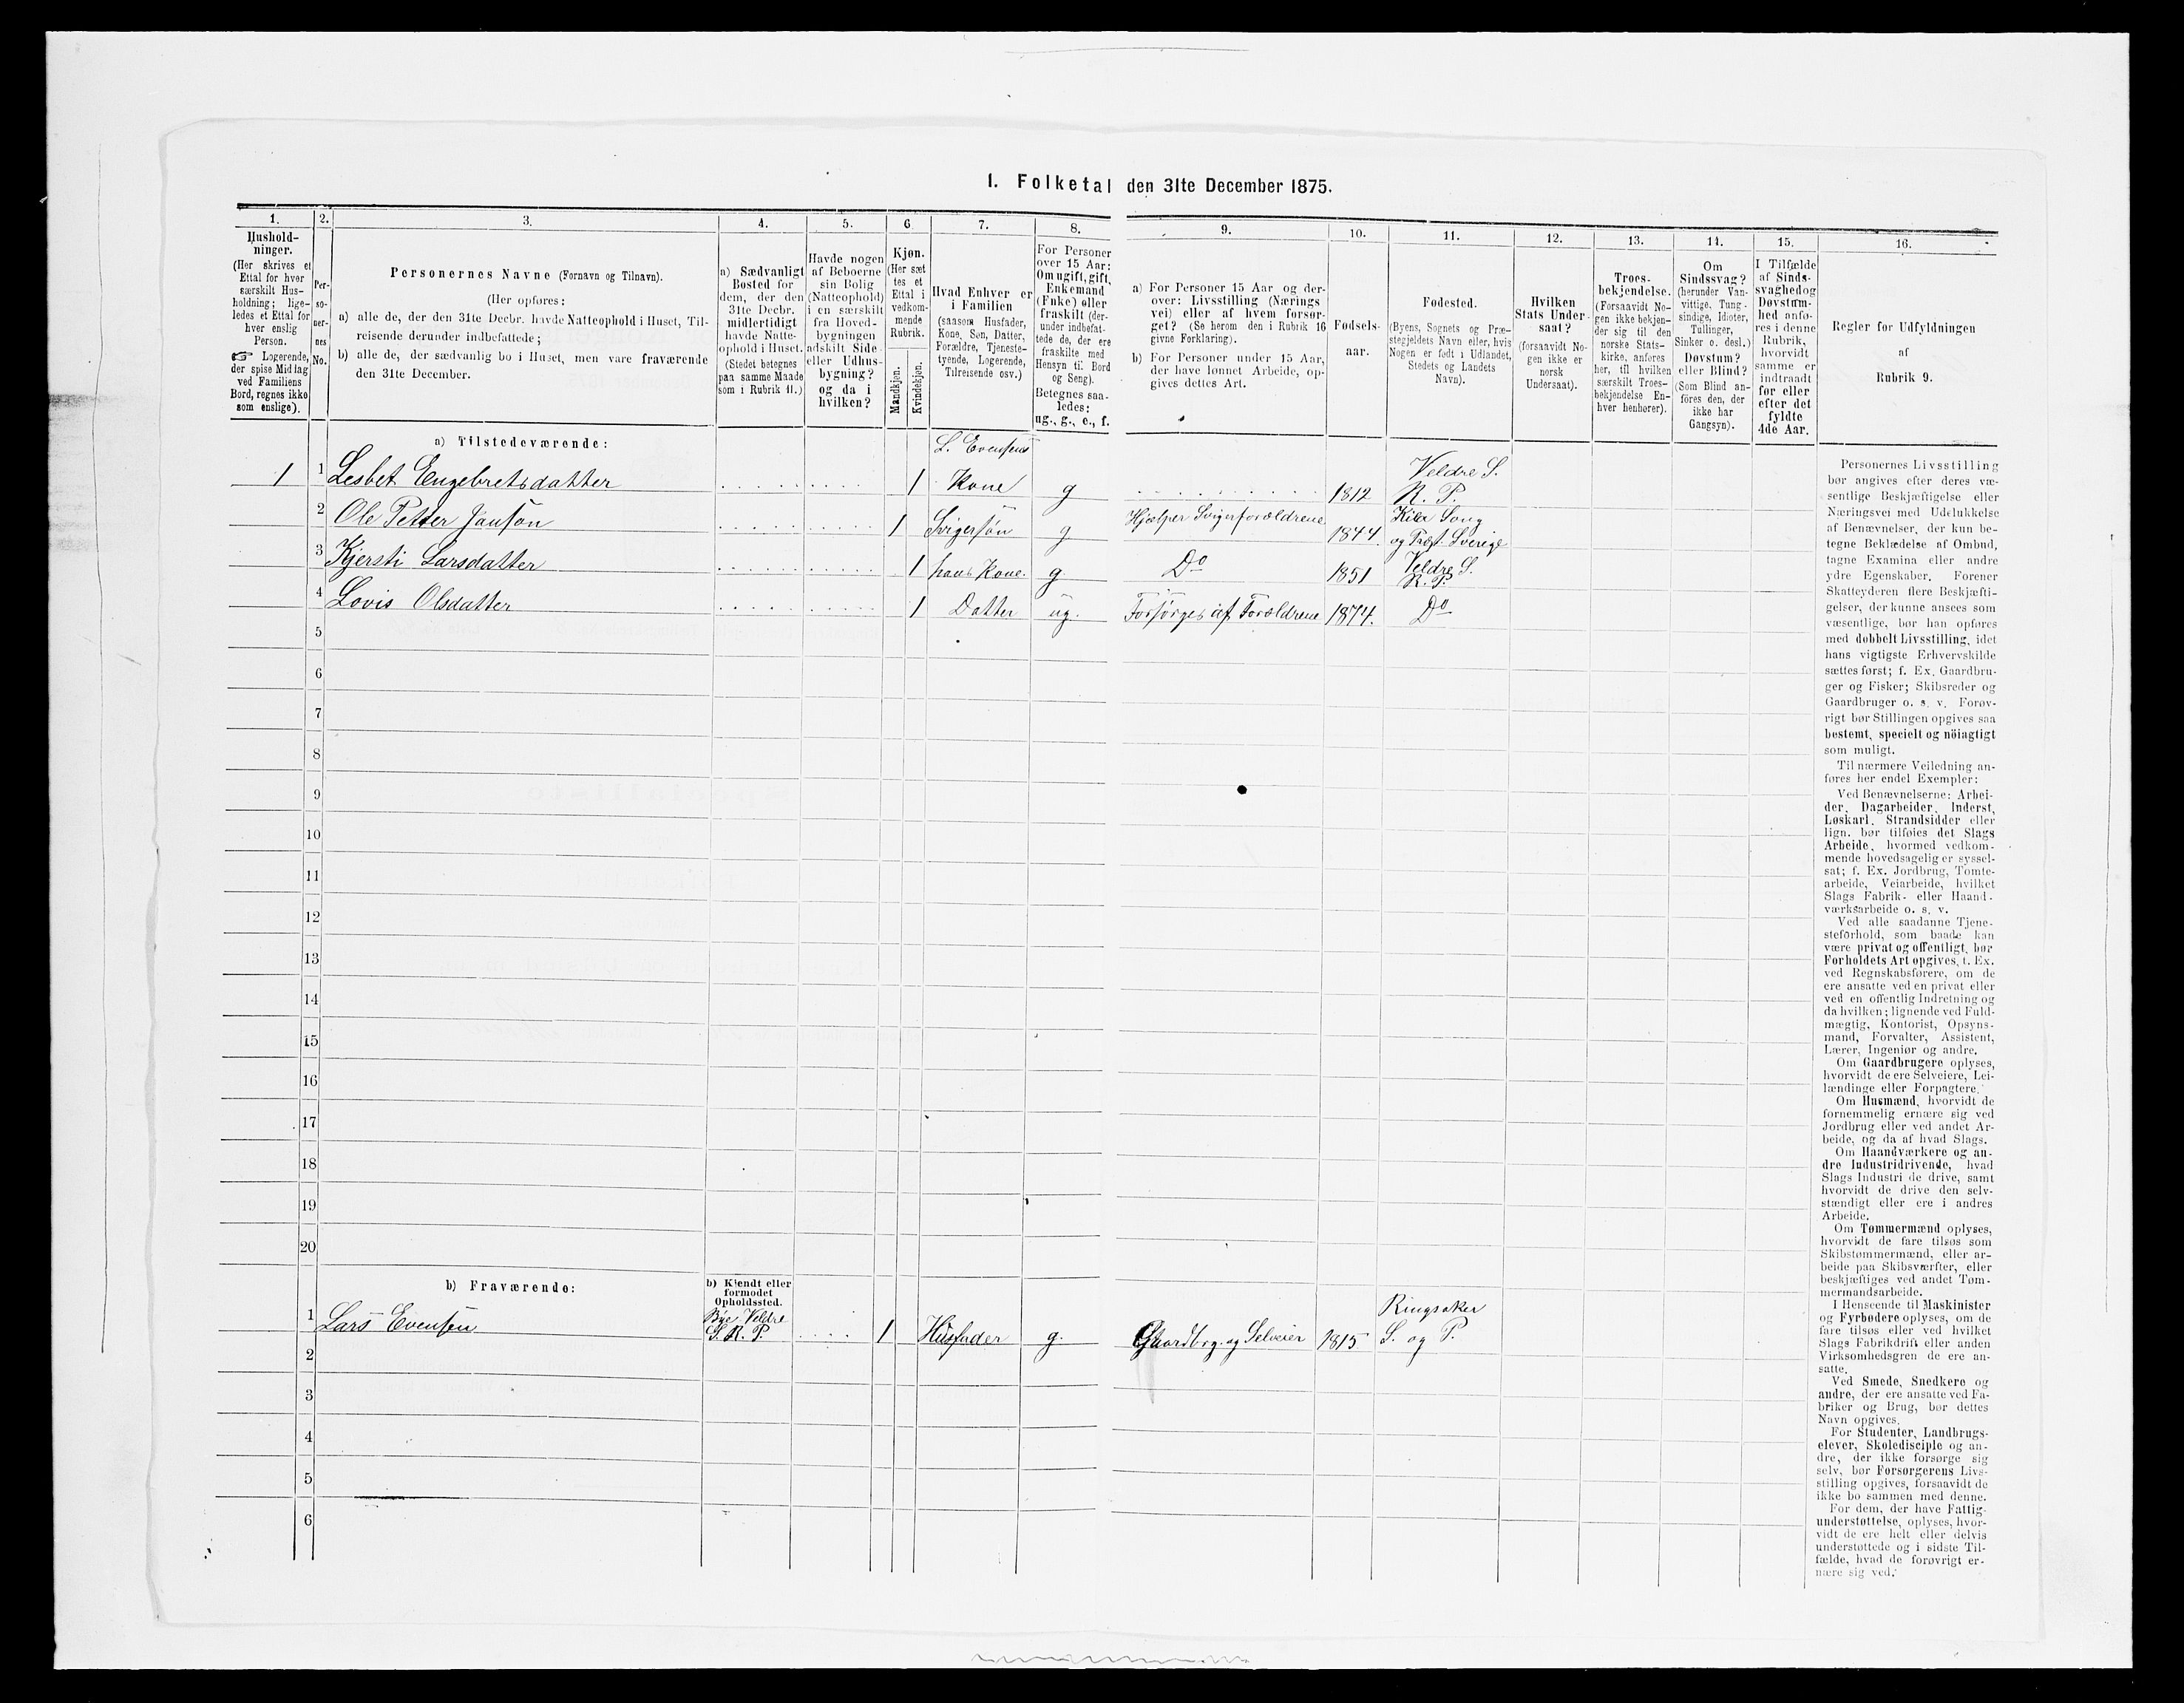 1. Folketal den 31te December 1875.
1.
Hushold-
ninger.
(Her skrives et
Ettal for hver
særskilt Hus-
holdning; lige-
ledes et Ettal for
hver enslig
Person.
☞ Logerende,
der spise Middag
ved Familiens
Bord, regnes ikke
som enslige).
2.
Per-
so-
ner-
nes
No.
3.
Personernes Navne (Fornavn og Tilnavn).
(Her opføres:
a) alle de, der den 31te Decbr. havde Natteophold i Huset, Til-
reisende derunder indbefattede;
b) alle de, der sædvanlig bo i Huset, men vare fraværende
den 31te December.
4.
a) Sædvanligt
Bosted for
dem, der den
31te Decbr.
midlertidigt
havde Natte-
ophold i Huset.
(Stedet betegnes
paa samme Maade
som i Rubrik 11.)
5.
Havde nogen
af Beboerne
sin Bolig
(Natteophold)
i en særskilt
fra Hoved-
bygningen
adskilt Side-
eller Udhus-
bygning?
og da i
hvilken?
6.
Kjøn.
(Her sæt
tes et
Ettal i
vedkom-
mende
Rubrik.
Mandkjøn.
Kvindekjøn.
7.
Hvad Enhver er
i Familien
(saasom Husfader,
Kone, Søn, Datter,
Forældre, Tjeneste-
tyende, Logerende,
Tilreisende osv.)
8.
For Personer
over 15 Aar:
Om ugift, gift,
Enkemand
(Enke) eller
fraskilt (der-
under indbefat-
tede de, der ere
fraskilte med
Hensyn til Bord
og Seng).
Betegnes saa-
ledes:
ug., g., e., f.
9.
a) For Personer 15 Aar og der-
over: Livsstilling (Nærings
vei) eller af hvem forsør-
get? (Se herom den i Rubrik 16
givne Forklaring).
b) For Personer under 15 Aar,
der have lønnet Arbeide, op-
gives dettes Art.
10.
Fødsels-
aar.
11.
Fødested.
(Byens, Sognets og Præ-
stegjeldets Navn eller, hvis
Nogen er født i Udlandet,
Stedets og Landets
Navn).
12.
Hvilken
Stats Under-
saat?
(forsaavidt No-
gen ikke er
norsk
Undersaat).
13.
Troes-
bekjendelse.
(Forsaavidt No-
gen ikke bekjen-
der sig til den
norske Stats-
kirke, anføres
her, til hvilken
særskilt Troes-
bekjendelse En-
hver henhører).
14.
Om
Sindssvag?
(herunder Van-
vittige, Tung-
sindige, Idioter,
Tullinger,
Sinker o. desl.)
Døvstum?
eller Blind?
(Som Blind an-
føres den, der
ikke har
Gangsyn).
15.
I Tilfælde
af Sinds-
svaghed og
Døvstum-
hed anfø-
res i denne
Rubrik,
hvorvidt
samme er
indtraadt
før eller
efter det
fyldte
4de Aar.
16.
Regler for Udfyldningen
af
Rubrik 9.
a) Tilstedeværende:
L. Evensens
1 1 Lesbet Engebretsdatter 1 Kone g 1812 Veldre S.
R. P.
2 Ole Petter Janson 1 Svigersøn g Hjælper Svigerforældrene 1844. Kila Song
og Præst. Sverige
3 Kjersti Larsdatter 1 hans Kone. g Do 1851 Veldre S.
R. P.
4 Lovis Olsdatter 1 Datter ug. Forsørges af Forældrene 1874. Do
5
6
7
8
9
10
11
12
13
14
15
16
17
18
19
20
b) Fraværende:
b) Kjendt eller
formodet
Opholdssted.
1 Lars Evensen Bye Veldre
S. R. P. 1 Husfader g. Gaardbrg. og Selveier 1815 Ringsaker
S. og P.
2
3
4
5
6
Personernes Livsstilling
bør angives efter deres væ-
sentlige Beskjæftigelse eller
Næringsvei med Udelukkelse
af Benævnelser, der kun be-
tegne Beklædelse af Ombud,
tagne Examina eller andre
ydre Egenskaber. Forener
Skatteyderen flere Beskjæfti-
gelser, der kunne ansees som
væsentlige, bør han opføres
med dobbelt Livsstilling, idet
hans vigtigste Erhvervskilde
sættes først; f. Ex. Gaardbru-
ger og Fisker; Skibsreder og
Gaardbruger o. s. v. Forøv-
rigt bør Stillingen opgives saa
bestemt, specielt og nöiagtigt
som muligt.
Til nærmere Veiledning an-
føres her endel Exempler:
Ved Benævnelserne: Arbei-
der, Dagarbeider, Inderst,
Løskarl, Strandsidder eller
lign. bør tilføies det Slags
Arbeide, hvormed vedkom-
mende hovedsagelig er syssel-
sat; f. Ex. Jordbrug, Tomte-
arbeide, Veiarbeide, hvilket
Slags Fabrik- eller Haand-
værksarbeide o. s. v.
Ved alle saadanne Tjene-
steforhold, som baade kan
være privat og offentligt, bør
Forholdets Art opgives, t. Ex.
ved Regnskabsførere, om de
ere ansatte ved en privat eller
ved en offentlig Indretning og
da hvilken; lignende ved Fuld-
mægtig, Kontorist, Opsyns-
mand, Forvalter, Assistent,
Lærer, Ingeniør og andre.
Om Gaardbrugere oplyses,
hvorvidt de ere Selveiere, Lei-
lændinge eller Forpagtere.
Om Husmænd, hvorvidt de
fornemmelig ernære sig ved
Jordbrug eller ved andet Ar-
beide, og da af hvad Slags.
Om Haandværkere og an-
dre Industridrivende, hvad
Slags Industri de drive, samt
hvorvidt de drive den selv-
stændigt eller ere i andres
Arbeide.
Om Tømmermænd oplyses,
hvorvidt de fare tilsøs som
Skibstømmermænd, eller ar-
beide paa Skibsværfter, eller
beskjæftiges ved andet Tøm-
mermandsarbeide.
I Henseende til Maskinister
og Fyrbødere oplyses, om de
fare tilsøs eller ved hvilket
Slags Fabrikdrift eller anden
Virksomhedsgren de ere an-
satte.
Ved Smede, Snedkere og
andre, der ere ansatte ved Fa-
briker og Brug, bør dettes
Navn opgives.
For Studenter, Landbrugs-
elever, Skoledisciple og an-
dre, der ikke forsørge sig
selv, bør Forsørgerens Livs-
stilling opgives, forsaavidt de
ikke bo sammen med denne.
For dem, der have Fattig-
understøttelse, oplyses, hvor-
vidt de ere helt eller delvis
understøttede og i sidste Til-
fælde, hvad de forøvrigt er-
nære sig ved.